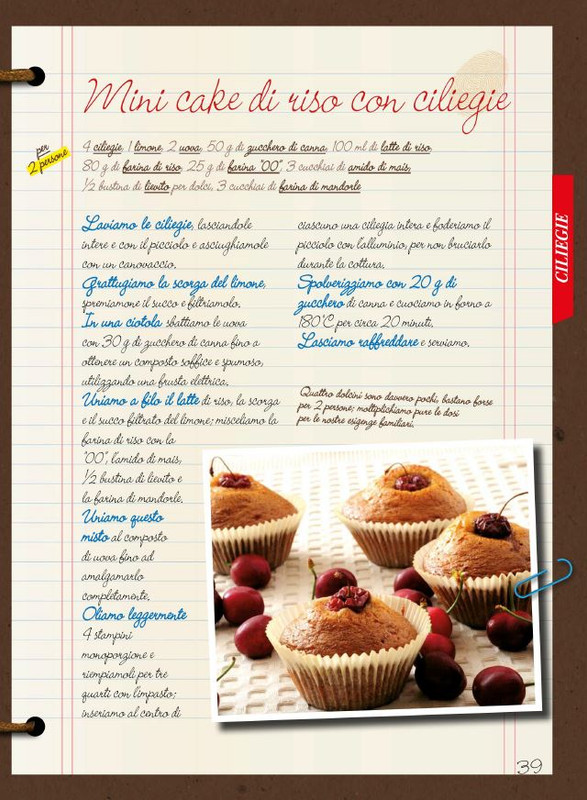 Mini cake di riso con ciliegie
per
2 persone
4 ciliegie, 1 limone, 2 uova, 50 g di zucchero di canna, 100 ml di latte di riso,
80 g di farina di riso, 25 g di farina "00", 3 cucchiai di amido di mais,
½ bustina di lievito per dolci, 3 cucchiai di farina di mandorle
Laviamo le ciliegie, lasciandole
intere e con il picciolo e asciughiamole
con un canovaccio.
Grattugiamo la scorza del limone,
spremiamone il succo e filtriamolo.
In una ciotola sbattiamo le uova
con 30 g di zucchero di canna fino a
ottenere un composto soffice e spumoso,
utilizzando una frusta elettrica.
Uniamo a filo il latte di riso, la scorza
e il succo filtrato del limone; misceliamo la
farina di riso con la
"00", l'amido di mais,
½ bustina di lievito e
la farina di mandorle.
Uniamo questo
misto al composto
di uova fino ad
amalgamarlo
completamente.
Oliamo leggermente
4 stampini
monoporzione e
riempiamoli per tre
quarti con l'impasto;
inseriamo al centro di
ciascuno una ciliegia intera e foderiamo il
picciolo con l'alluminio, per non bruciarlo
durante la cottura.
Spolverizziamo con 20 g di
zucchero di canna e cuociamo in forno a
180°C per circa 20 minuti.
Lasciamo raffreddare e serviamo.
Quattro dolcini sono davvero pochi, bastano forse
per 2 persone; moltiplichiamo pure le dosi
per le nostre esigenze familiari.
CILIEGIE
39